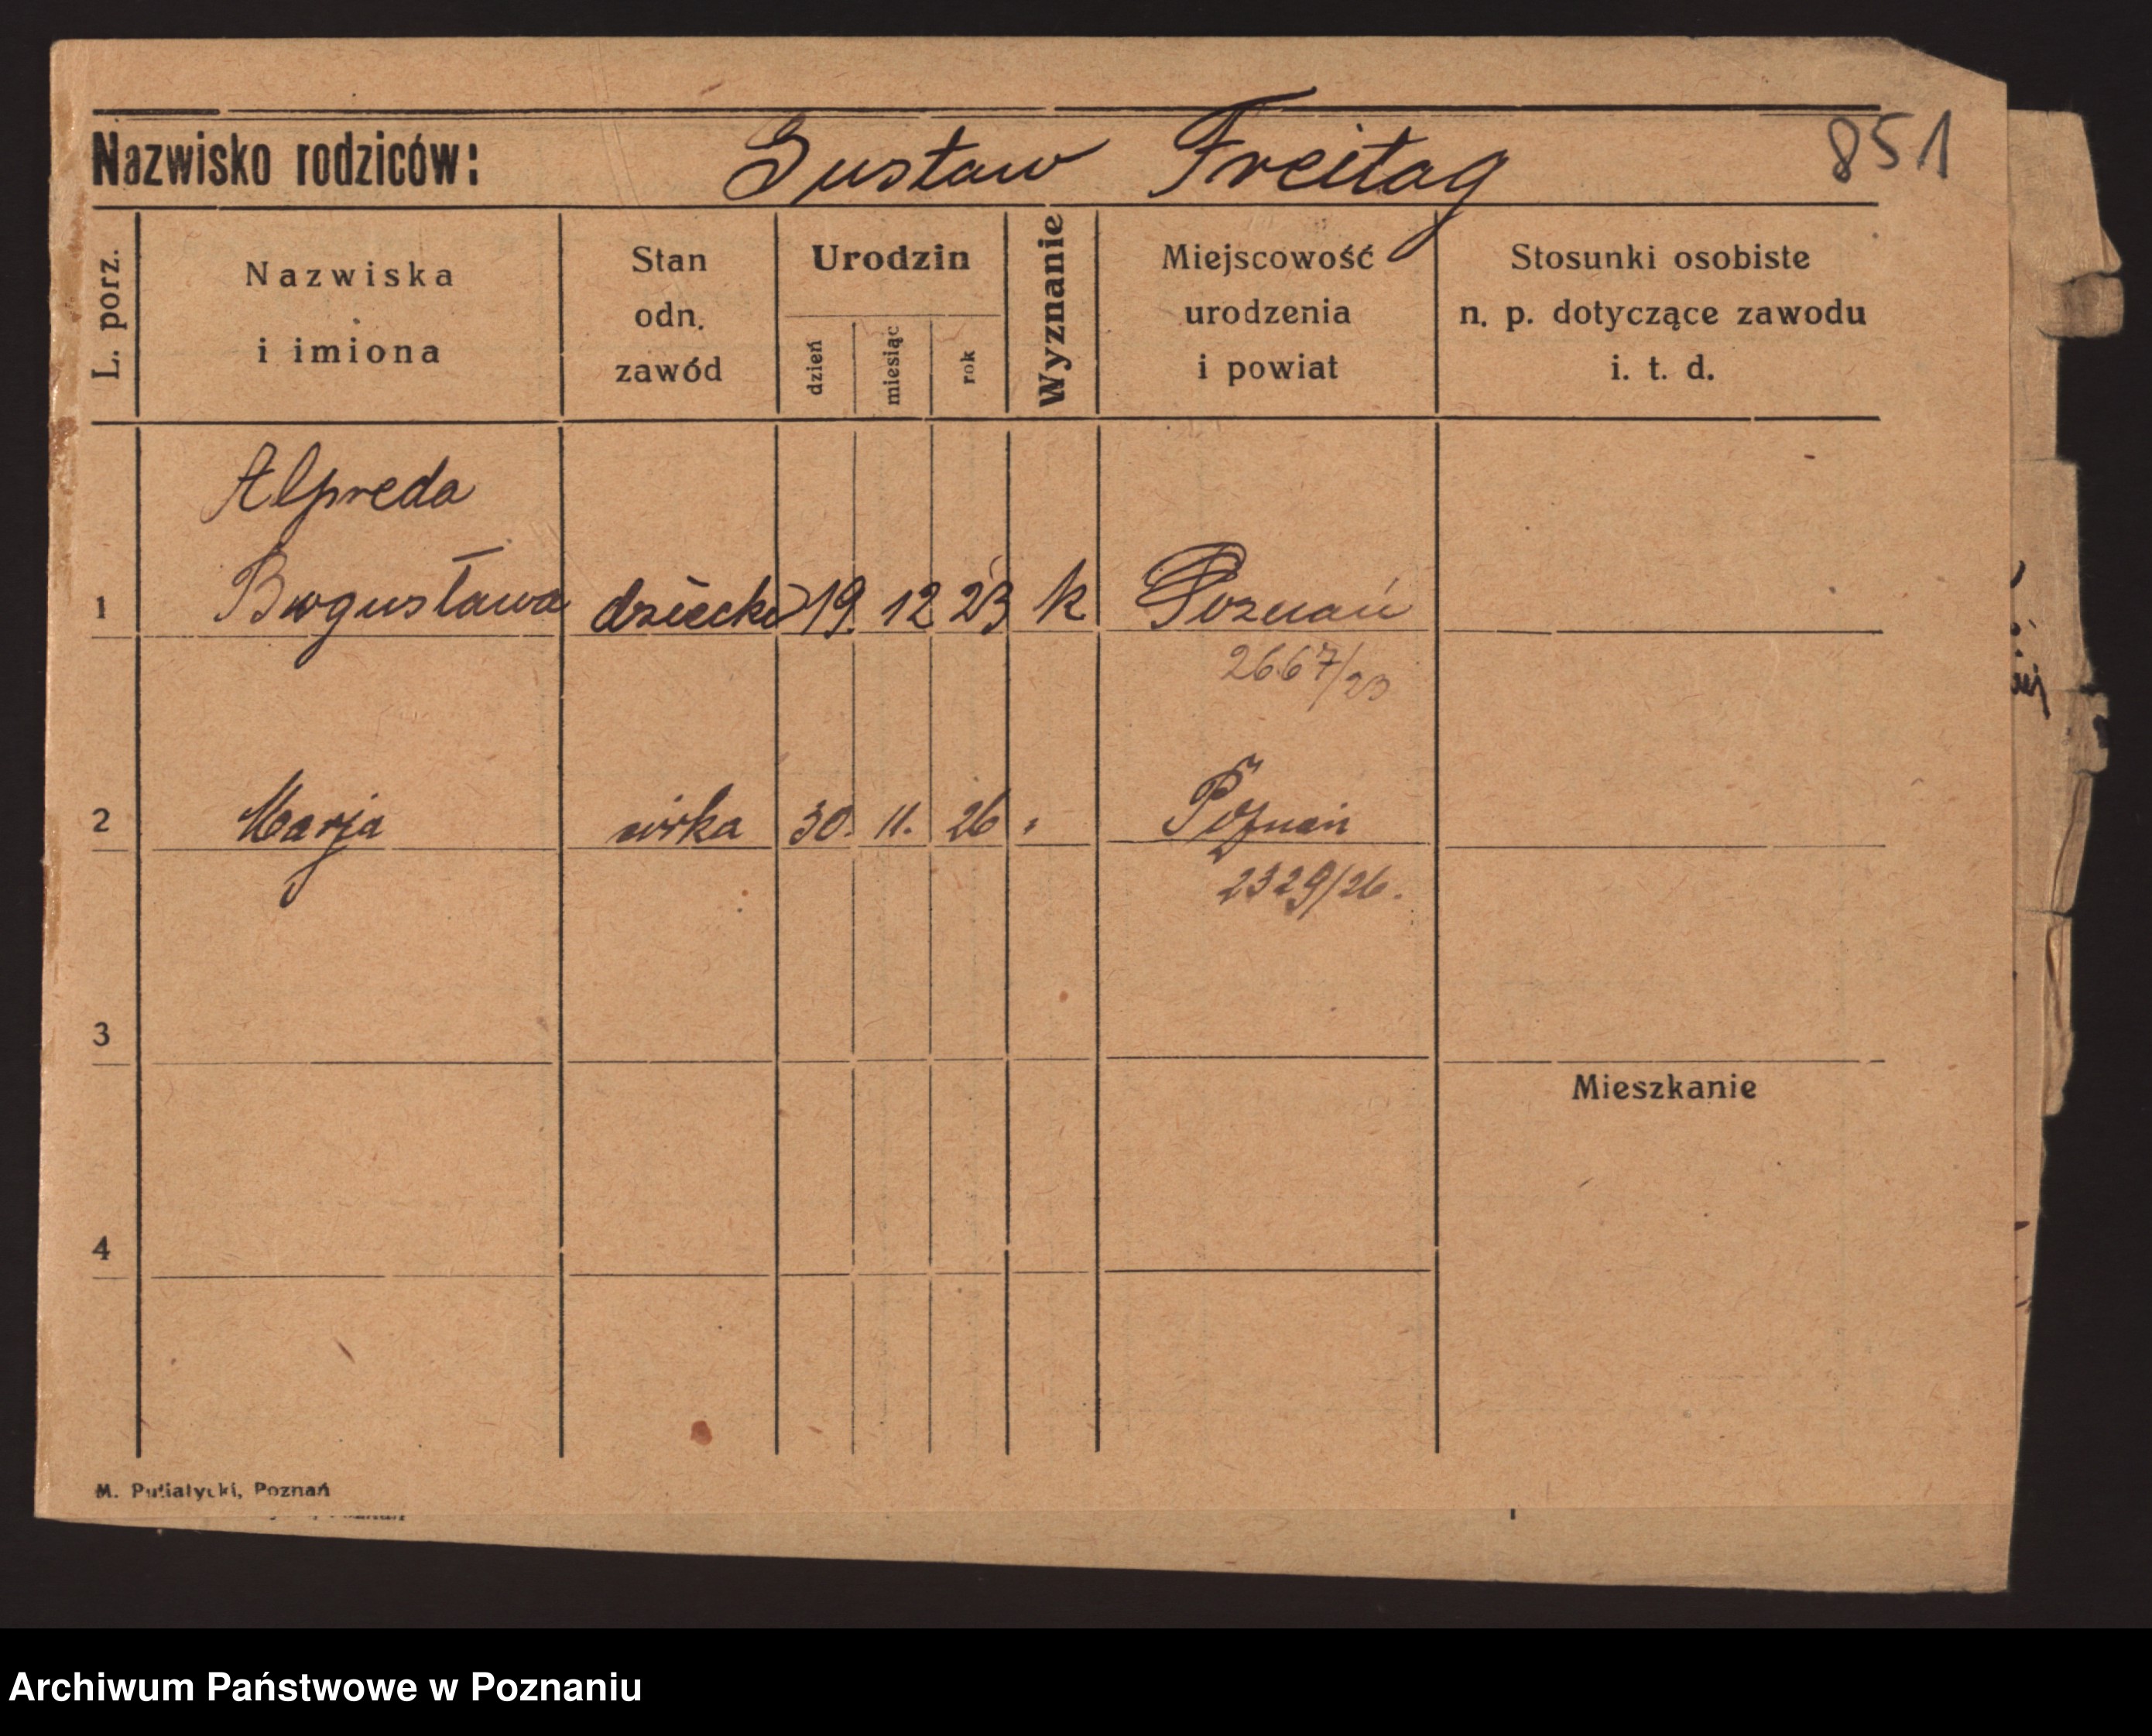 Nazwisko rodziców: Gustaw Freitag 851
L. porz.
Nazwiska
i imiona
Stan
odn.
zawód
Urodzin
dzień miesiąc rok
Wyznanie
Miejscowość
urodzenia
i powiat
Stosunki osobiste
n. p. dotyczące zawodu
i. t. d.
Alfreda
1 Bogusława dziecko 19. 12 23 k Poznań
2667/23
2 Marja córka 30. 11. 26 „ Poznań
2329/26.
3
Mieszkanie
4
M. Putiatycki, Poznań
Archiwum Państwowe w Poznaniu